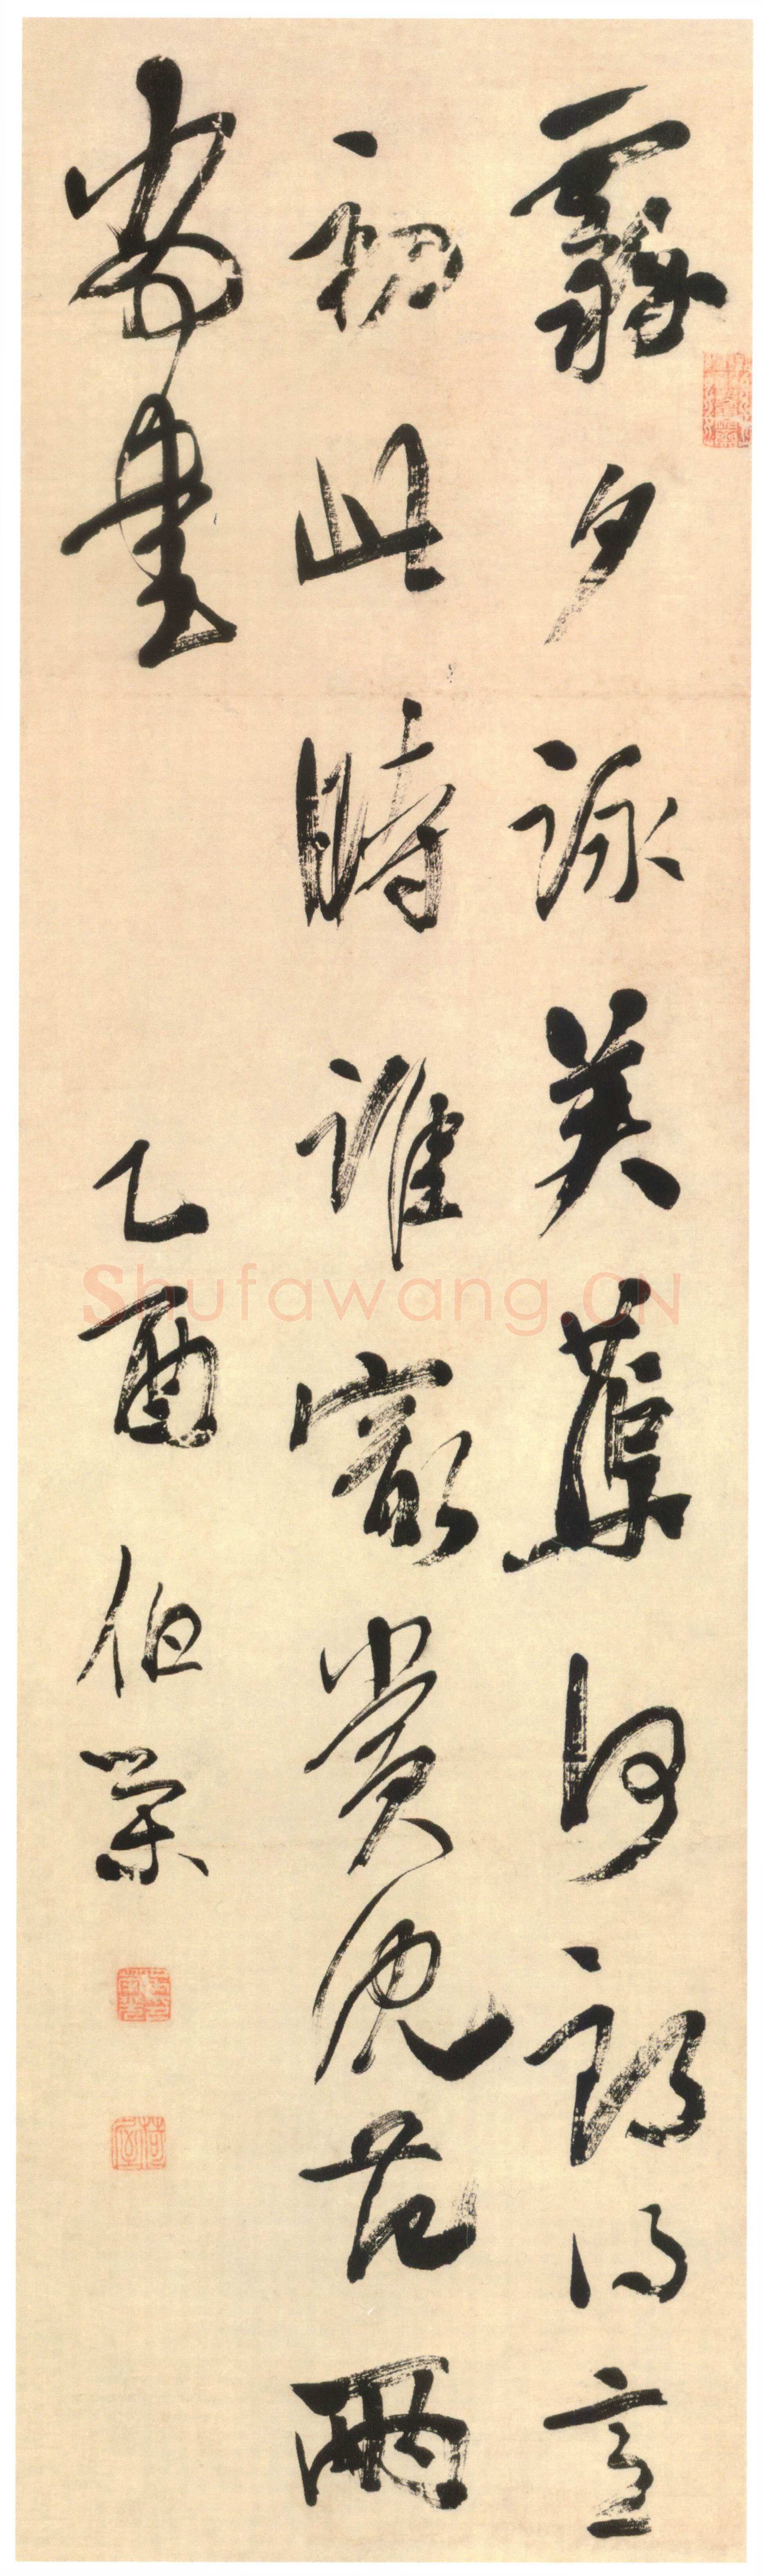 霧夕詠芙蕖何郎得意
初此時誰最賞沈范兩
尚書
乙酉 伯榮
Shufawang.CN